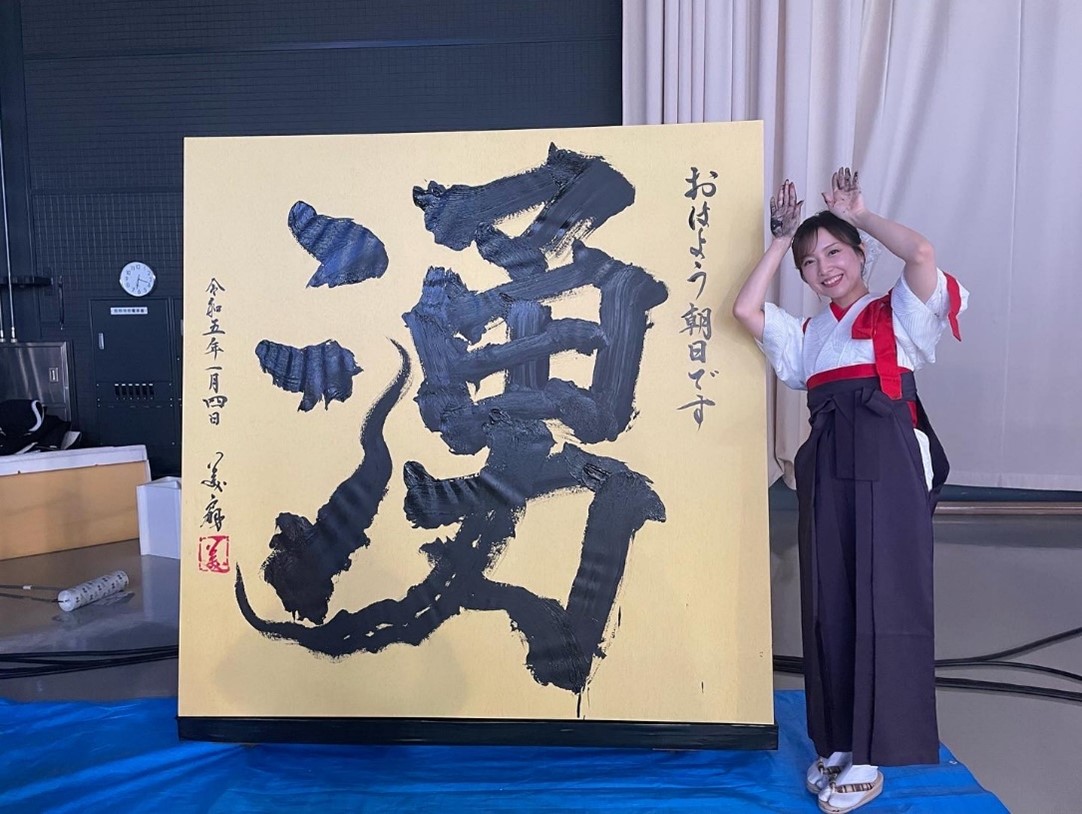 おはよう朝日です
湧
令和五年一月四日 美扇
美